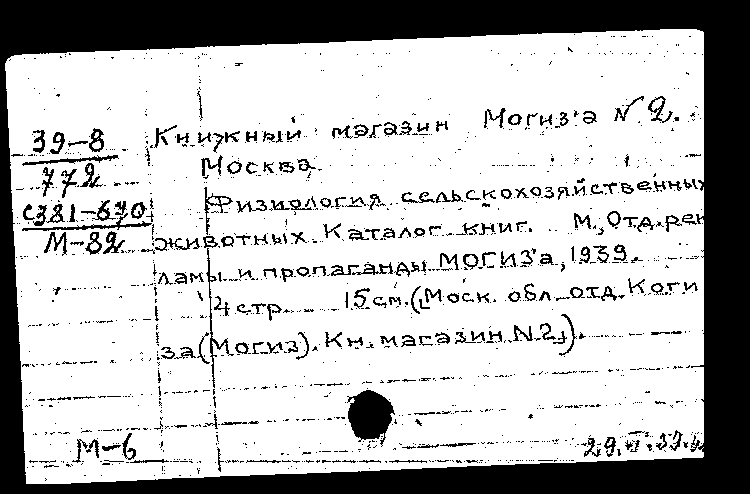 39-8
772
с381-670
М-82
Книжный магазин Могиз'а N 2.
Москва
Физиология сельскохозяйственных
животных. Каталог книг. М., Отд. рек
ламы и пропаганды МОГИЗ'а, 1939.
4 стр 15 см. (Моск. обл. отд. Коги
за (Могиз). Кн. магазин N 2).
М-6
29.VI.39.